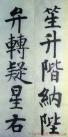 笙升階納陛
弁轉疑星右